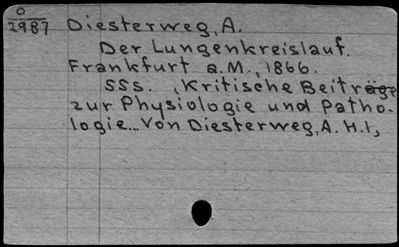 O
2987 Diesterweg, A.
Der Lungenkreislauf.
Frankfurt a.M., 1866.
SSS. , Kritische Beiträge
zur Physiologie und Patho-
logie... Von Diesterweg, A. H.1,